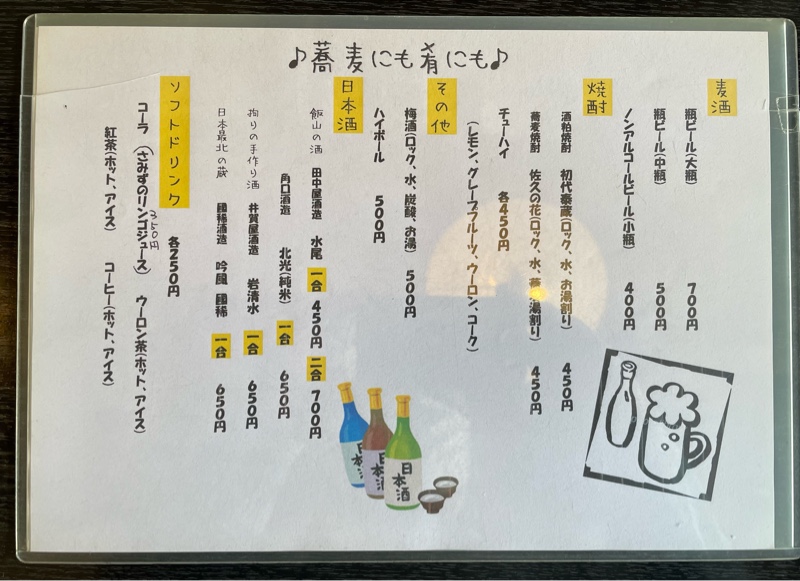 ♪蕎麦にも肴にも♪
麦酒
瓶ビール(大瓶) 700円
瓶ビール(中瓶) 500円
ノンアルコールビール(小瓶) 400円
焼酎
酒粕焼酎 初代泰蔵(ロック、水、お湯割り) 450円
蕎麦焼酎 佐久の花(ロック、水、蕎麦湯割り) 450円
チューハイ 各450円
(レモン、グレープフルーツ、ウーロン、コーク)
その他
梅酒(ロック、水、炭酸、お湯) 500円
ハイボール 500円
日本酒
飯山の酒 田中屋酒造 水尾 一合 450円 二合 700円
角口酒造 北光(純米) 一合 650円
拘りの手作り酒 井賀屋酒造 岩清水 一合 650円
日本最北の蔵 國稀酒造 吟風 國稀 一合 650円
ソフトドリンク 各250円
コーラ (さみずのリンゴジュース) ウーロン茶(ホット、アイス)
350円
紅茶(ホット、アイス) コーヒー(ホット、アイス)
日本酒
日本酒
日本酒